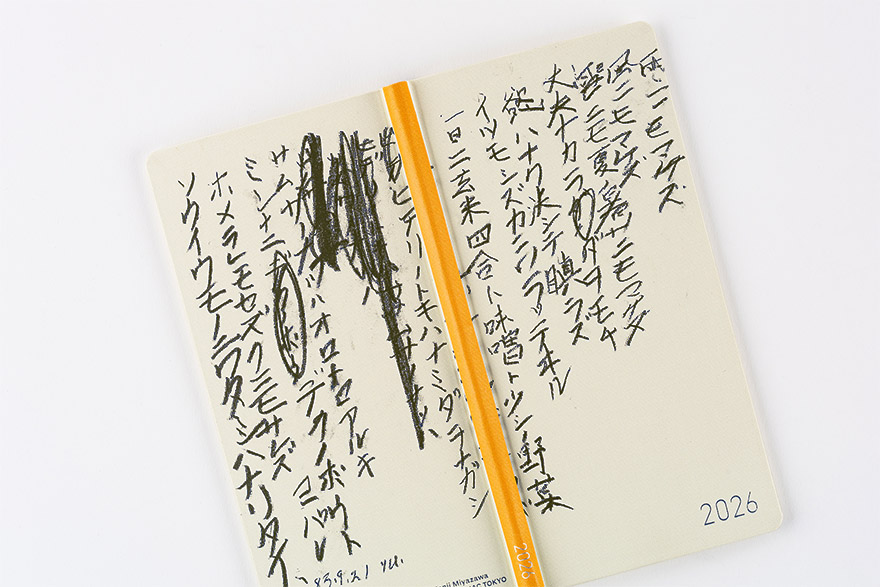 雨ニモマケズ
風ニモマケズ
雪ニモ夏ノ暑サニモマケズ
丈夫ナカラダヲモチ
慾ハナク決シテ瞋ラズ
イツモシズカニワラッテイル
一日ニ玄米四合ト味噌ト少シノ野菜
ヒデリノトキハナミダヲナガシ
サムサノナツハオロオロアルキ
ミンナニデクノボウト
ヨバレ
ホメラレモセズクニモサレズ
ソウイウモノニワタシハナリタイ
'83.9.21 yu.
Miyazawa
TOKYO
2026
2026